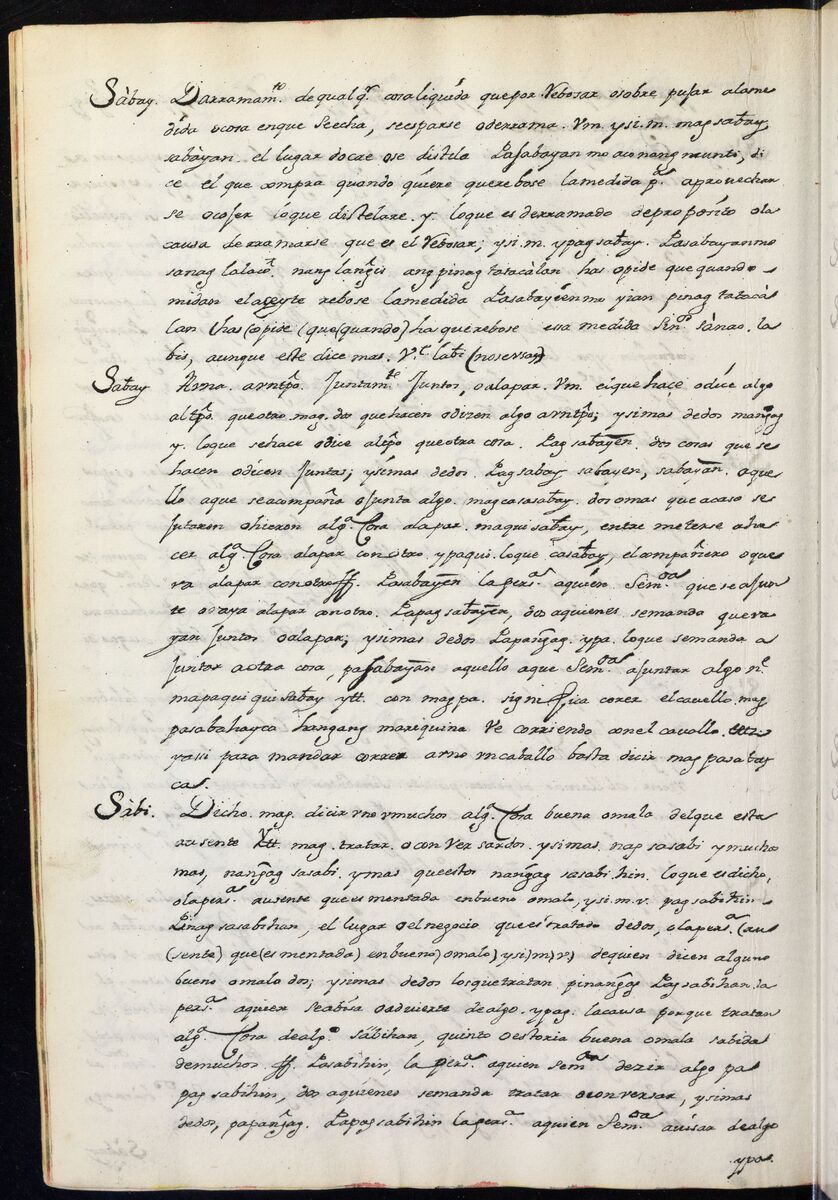 Sàbay. Darramam.to de qual q.r cosa liquida que por Rebosar o sobre pujar a la me
dida o cosa en que se echa, se esparse o derrama. Vm. y si.m. mag sabay,
sabàyan. el lugar do cae o se distila Pasabayan mo aco nang munti, di
ce el que compra quando quiere que rebose la medida p.a aprouechar
se o coger lo que distelare. y. lo que es derramado de proposito o la
causa de rramarse que es el Rebosar; y si.m. ypag sabay. Pasabayan mo
sa nag lalaco. nang langis ang pinag tatacàlan has o pide que quando
midan el açeyte rebose la medida Pasabayan mo yian pinag tatacà
lan (has (o pide (que (quando) ha que rebose esa medida Sin.o sànao. la
bis, aunque este dice mas. V.e labi (no servay)
Sabay Yrna. a vn tpo. Juntam.te Juntos, o a la par. Vm. el que haçe o dice algo
al tpo. que otro. mag. dos que hacen o dizen algo a vn tpo; y si mas de dos mangag
y. lo que se hace o dice al tpo que otra cosa. Pag sabayen. dos cosas que se
hacen o dicen Juntas; y si mas de dos. Pag sabay sabayen, sabayan. aque
llo a que se acompaña o Junta algo. magcasasabay. dos o mas que a caso se
Jutaron o hicieron alg.a Cosa a la par. maqui sabay, entre meterse a ha
cer alg.a Cosa a la par con otro. y paqui. lo que casabay, el compañero o que
va a la par con otro ff. Pasabayen la pers.a a quien Sem.da que se a Jun
te o vaya a la par con otro. Papag sabayen, dos a quienes se manda que va
yan Juntos o a la par; y si mas de dos Papangag. ypa. lo que se manda a
Juntar a otra cosa, pasabayan aquello a que Sem.da a Juntar algo n.e
mapaqui qui sabay ytt. con mag pa. significa corer el cavallo mag
pasabahay ca hangang mariquina Ve corriendo con el cavallo
y assi para mandar correr a vno vn caballo basta dicir mag pasabay
ca.
Sàbi. Decho. mag. dicir vno v muchos alg.a Cosa buena o mala del que esta
ausente Ytt. mag. tratar. o con versar dos. y si mas. nag sasabi y mucho
mas, nangag sasabi. y mas que estos nangag sasabihin. lo que es dicho,
o la pers.a ausente que es mentada en bueno o malo, y si.m. v. pag sabihin
Pinag sasabihan, el lugar o el negocio que es tratado de dos, o la pers.a (au
(sente) que (es mentada) en bueno (o malo) y si) m) v) de quien dicen alguno
bueno o malo dos; y si mas de dos los que tratan. pinangag Pag sabihan. la
pers.a a quien se abisa o advierte de algo. ypag. la causa porque tratan
alg.a Cosa de alg.o sàbihan, quinto o estoria buena o mala sabida
de muchos. ff. Pasabihin, la pers.a a quien sem.da dezir algo pa
pag sabihin, dos a quienes se manda tratar o conversar, y si mas
de dos, papangag. Papag sabihin la pers.a a quien Sem.da avisar de algo
ypa.